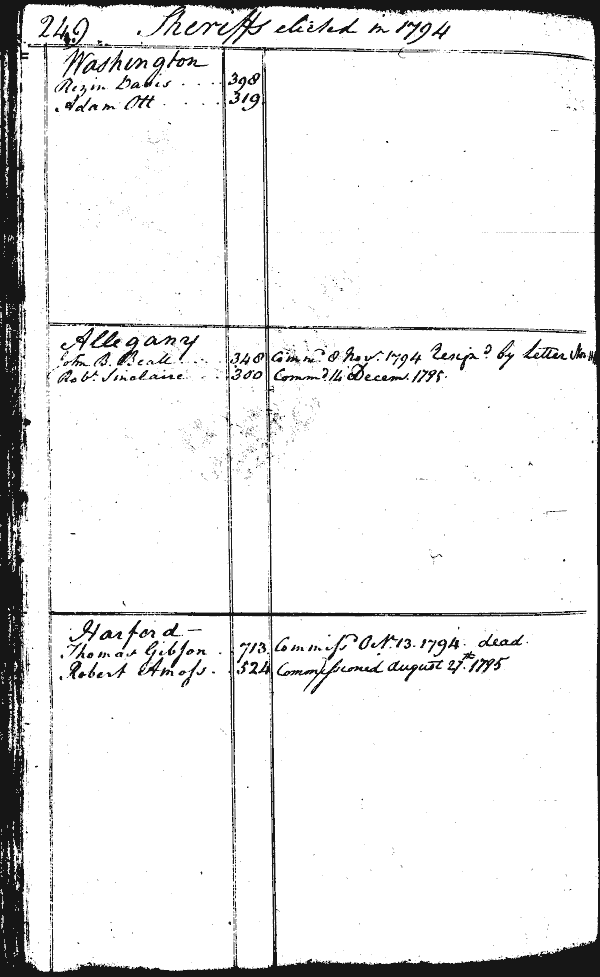 249. Sheriffs elected in 1794
Washington
Rezin Davis 398
Adam Ott 319
Allegany
John B. Beall 348 Comm.d 8 Nov.r 1794 Resign.d by letter
Rob.t Sinclaire 300 Comm.d 14 Decem. 1795.
Harford –
Thomas Gibson 713 Commiss.d Oct. 13. 1794. dead.
Robert Amoss 524 Commissioned August 27.th 1795